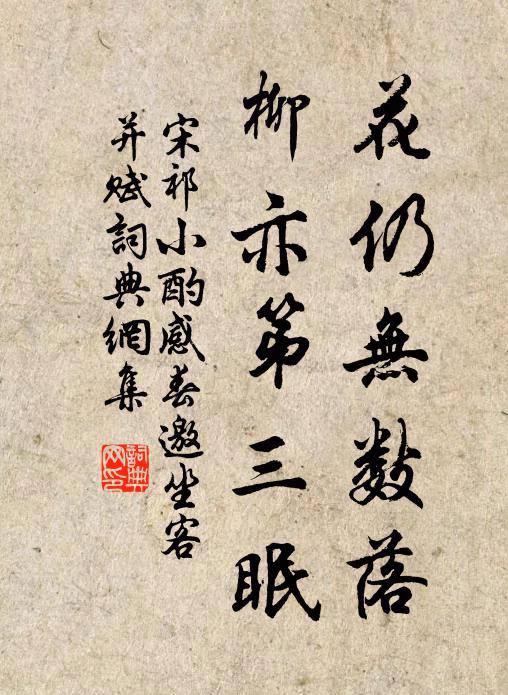 花仍無數落
柳亦第三眠
宋祁小酌感春邀坐客
并賦詞典網集
詞典
网印